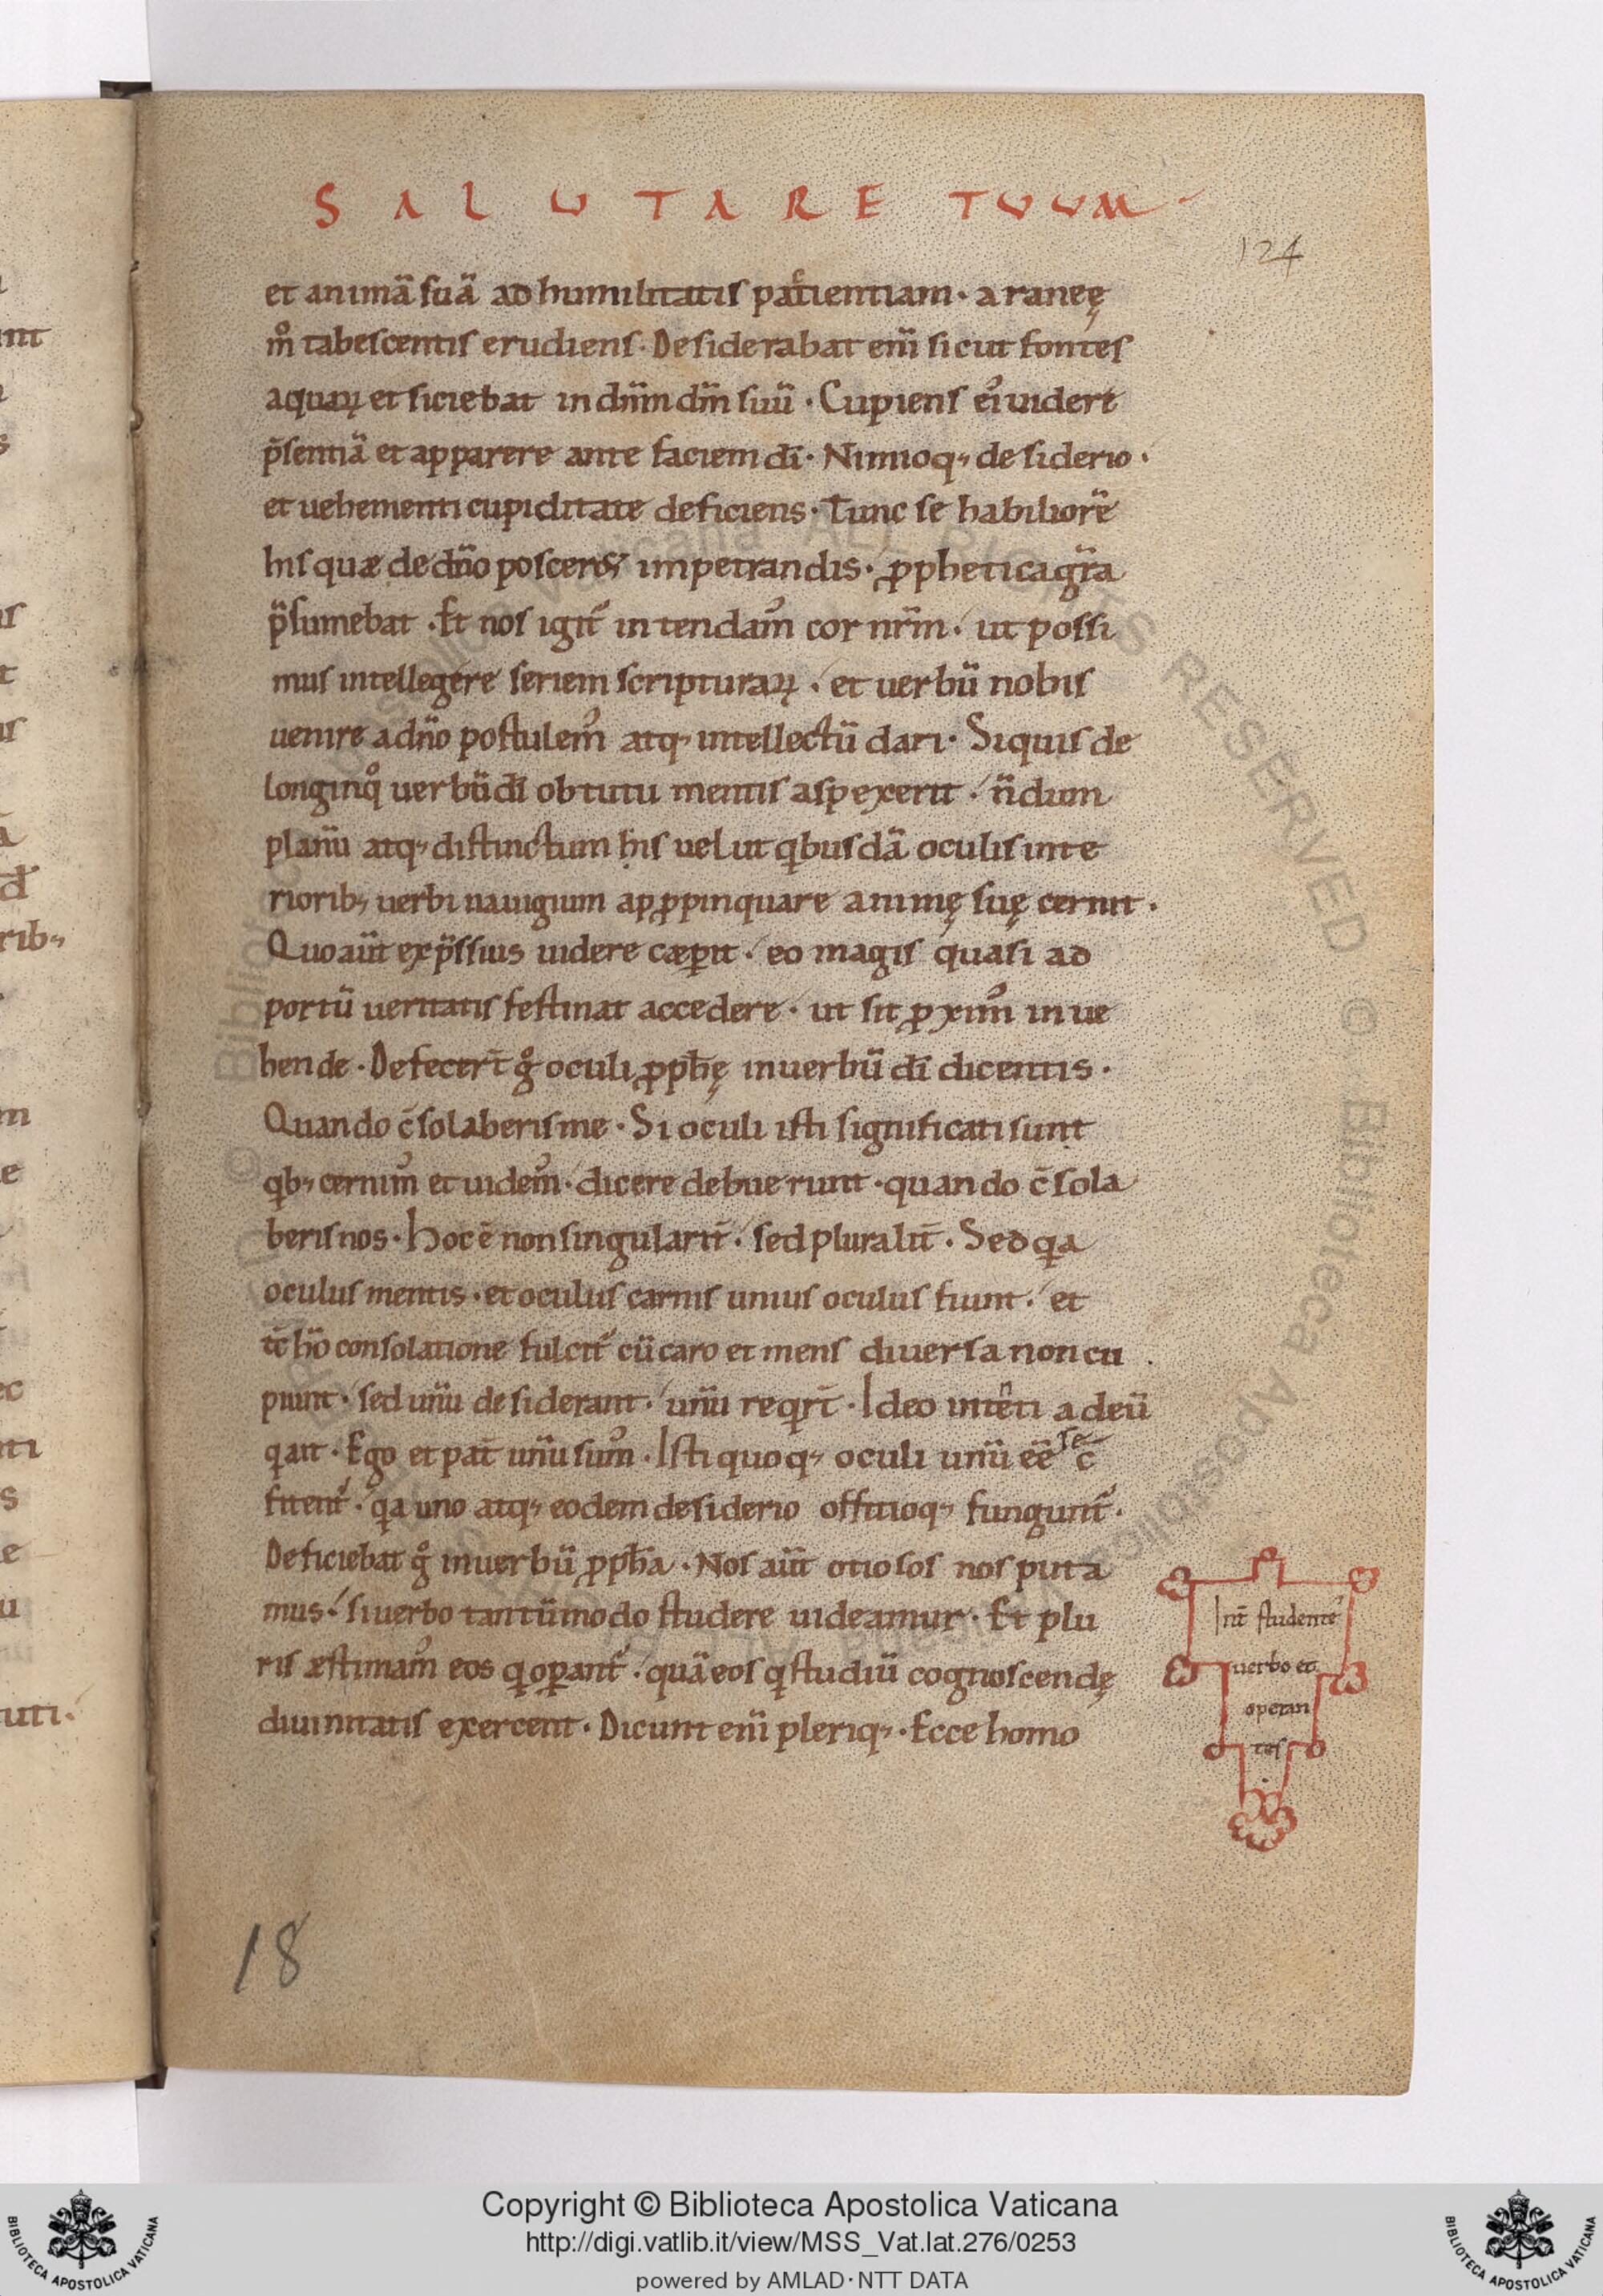 SALUTARE TUUM·
124
et animã suã ad humilitatis patientiam· araneę
m̊ tabescentis erudiens· Desiderabat eni̅ sicut fontes
aquaꝝ et siciebat in dn̅m dm̅ suũ· Cupiens ei᷒ videre
p̅sentiã et apparere ante faciem di̅· Nimioq; desiderio·
et vehementi cupiditate deficiens· Tunc se habiliorẽ
his quæ de dn̅o poscer& impetrandis· ꝓpheticagr̅a
p̅sumebat· Et nos igit᷑ intendam᷒ cor nr̅m· ut possi
mus intellegere seriem scripturaꝝ· et verbũ nobis
venire a dn̅o postulem᷒ atq; intellectũ dari· Siquis de
longinq̊ verbũ di̅ obtutu mentis aspexerit· n̅dum
planũ atq; distinctum his velut qbusdã oculis inte
riorib; verbi navigium apꝓpinquare animę suę cernit·
Quo aũt exp̅ssius videre cæꝑit· eo magis quasi ad
portũ veritatis festinat accedere· ut sit ꝓxim᷒ inve
hende· Defecer̅t g̊ oculi ꝓph̅ę inverbũ di̅ dicentis·
Quando c̅solaberis me· Si oculi isti significati sunt
qb; cernim᷒ et videm᷒· dicere debuerunt· quando c̅sola
beris nos· Hoc ẽ non singularit̅· sed pluralit̅· Sed qa
oculus mentis· et oculus carnis unius oculus fiunt· et
tc̅ ho̅ consolatione fulcit᷑ cũ caro et mens diversa non cu
piunt· sed unũ desiderant· unũ reqr̅t· Ideo intẽti a deũ
q ait· Ego et pat̅ unũ sum᷒· Isti quoq; oculi unũ ee̅ se c̅
fitent᷑· qa uno atq; eodem desiderio offitioq; fungunt᷑·
Deficiebat g̊ inverbũ ꝓph̅a· Nos aũt otiosos nos puta
mus· si verbo tantũmodo studere videamur· Et plu
ris æstimam᷒ eos q oꝑant᷑· quã eos q studiũ cognoscendę
divinitatis exercent· Dicunt eni̅ pleriq;· Ecce homo
Int̅ studente᷒
verbo et
operan
tes
18
Copyright © Biblioteca Apostolica Vaticana
http://digi.vatlib.it/view/MSS_Vat.lat.276/0253
powered by AMLAD·NTT DATA